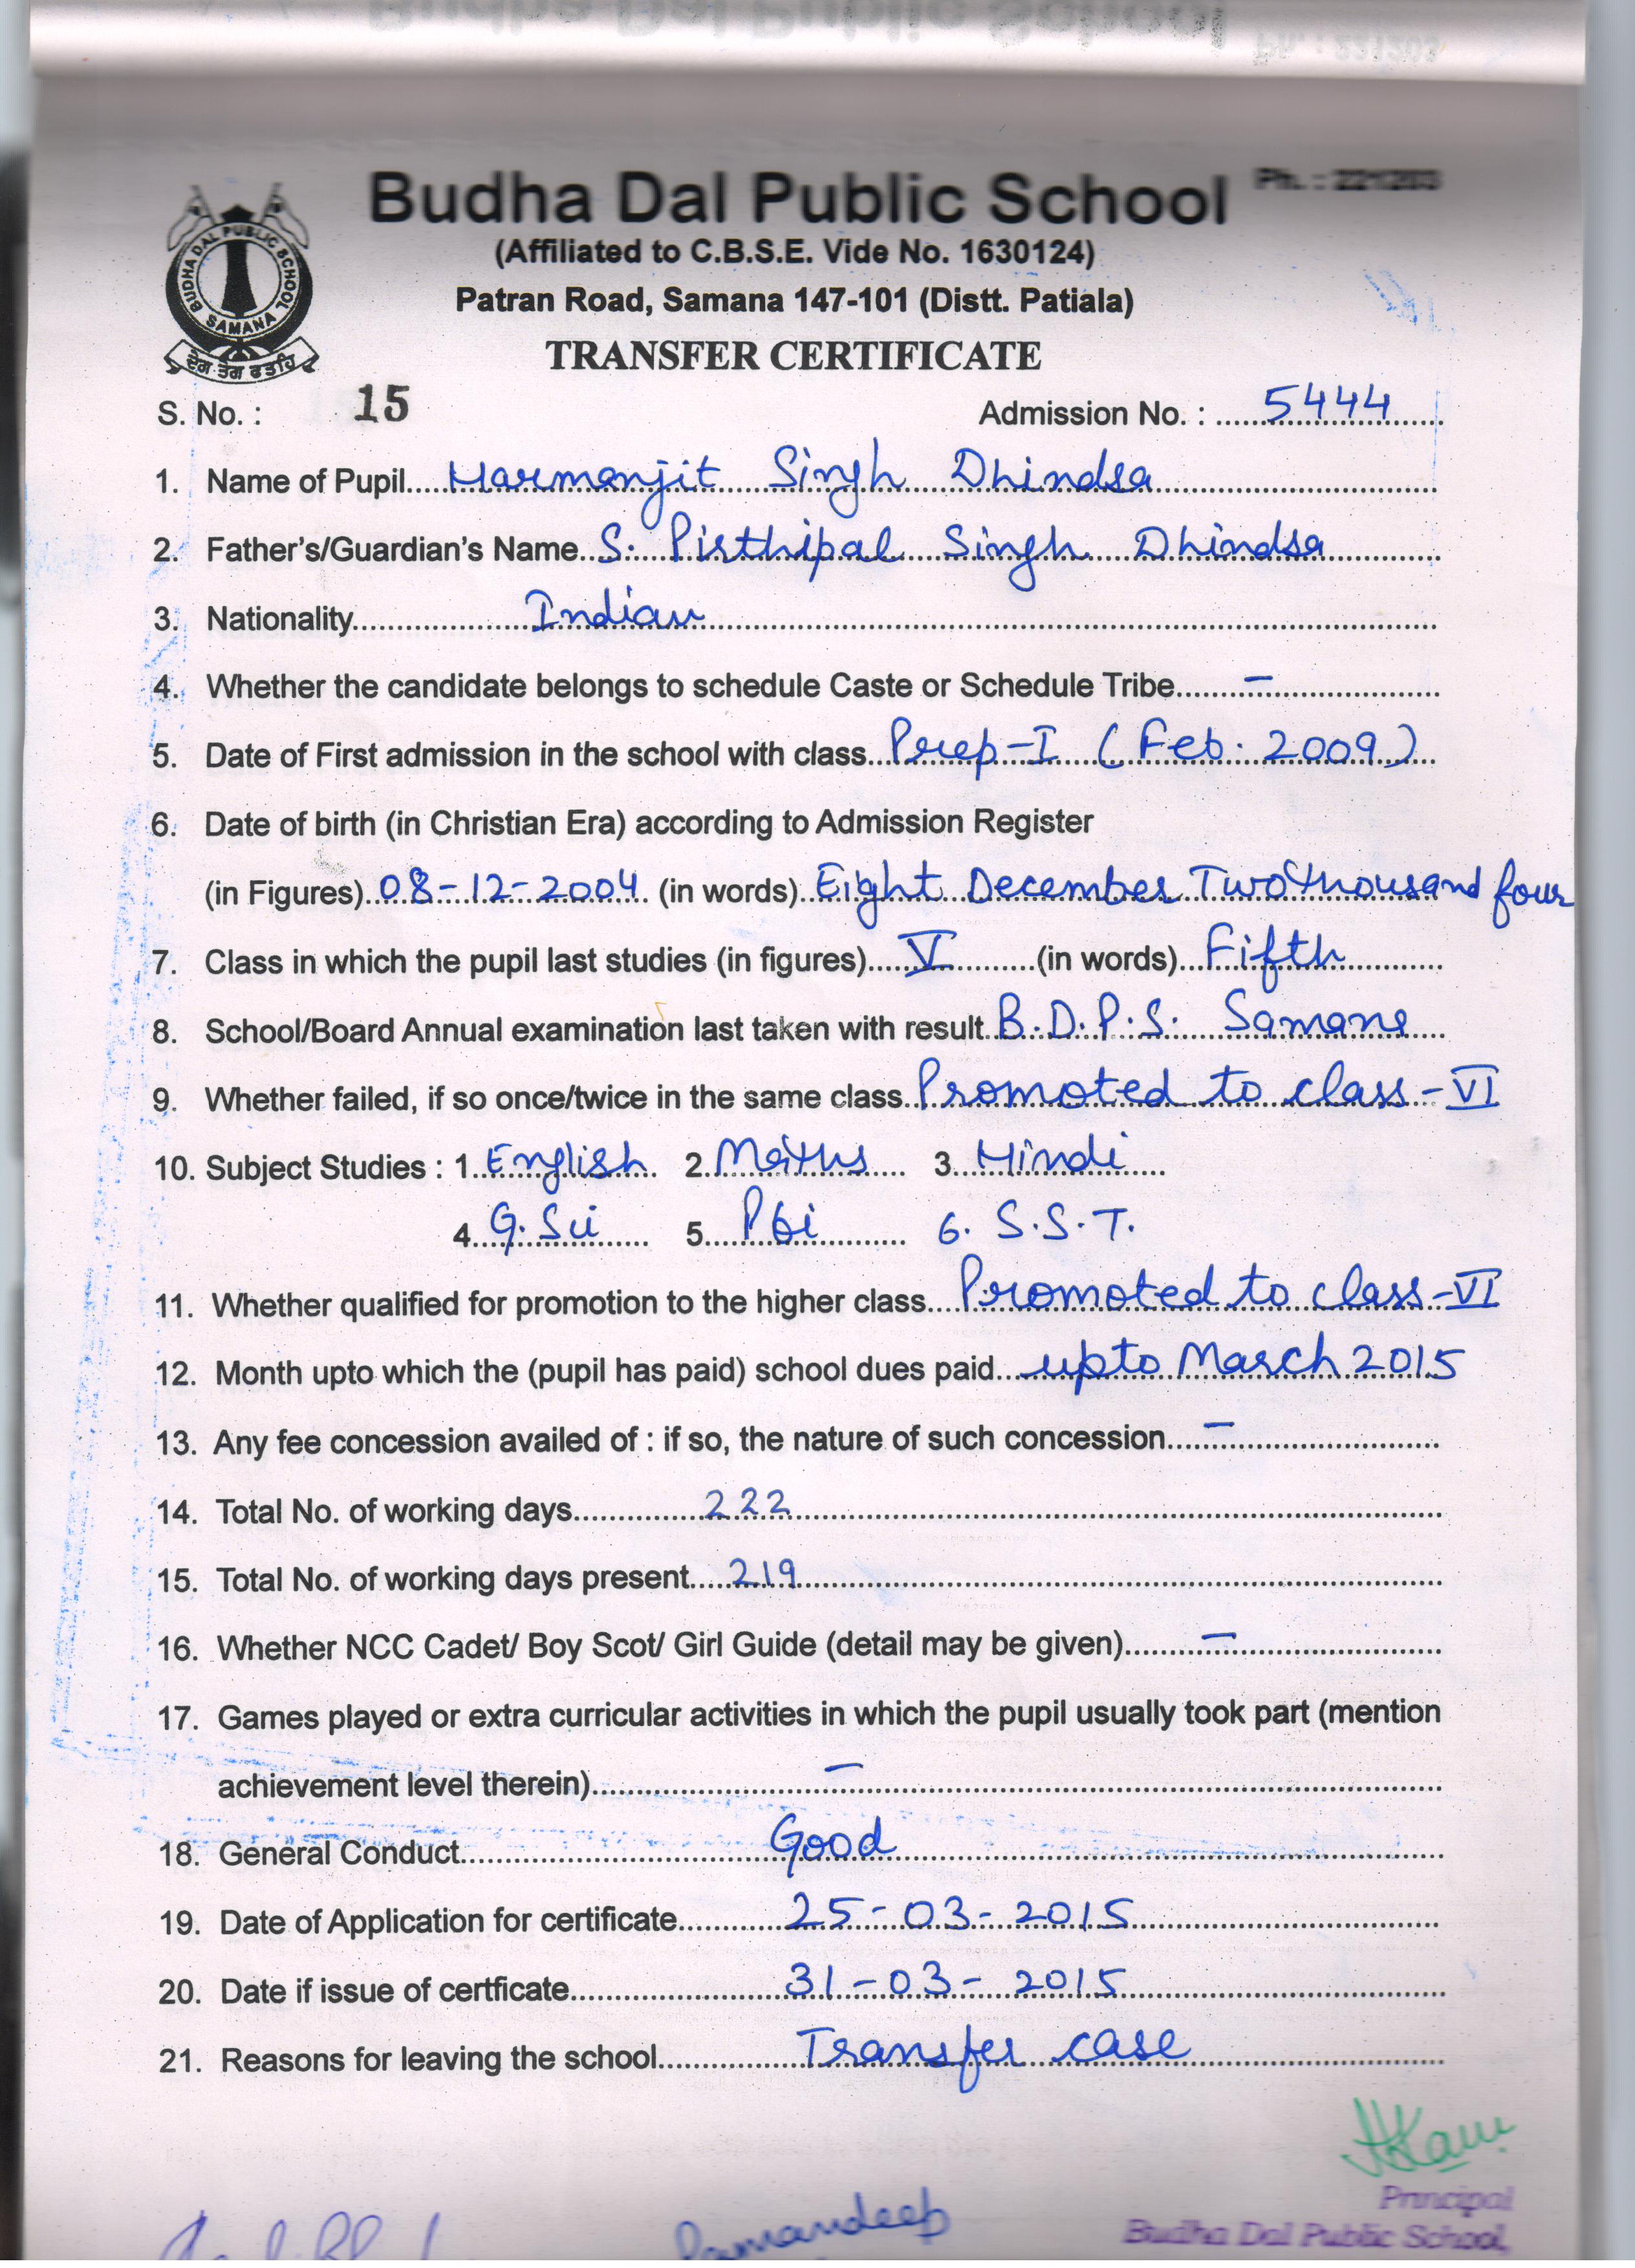 Budha Dal Public School
Ph. : 221203
(Affiliated to C.B.S.E. Vide No. 1630124)
Patran Road, Samana 147-101 (Distt. Patiala)
BUDHA DAL PUBLIC SCHOOL
SAMANA
ਦੇਗ ਤੇਗ ਫਤਹਿ
TRANSFER CERTIFICATE
S. No. : 15 Admission No. : 5444
1. Name of Pupil Harmanjit Singh Dhindsa
2. Father's/Guardian's Name S. Pirthipal Singh Dhindsa
3. Nationality Indian
4. Whether the candidate belongs to schedule Caste or Schedule Tribe –
5. Date of First admission in the school with class Prep-I (Feb. 2009)
6. Date of birth (in Christian Era) according to Admission Register
(in Figures) 08-12-2004 (in words) Eight December Two thousand four
7. Class in which the pupil last studies (in figures) V (in words) Fifth
8. School/Board Annual examination last taken with result B.D.P.S. Samana
9. Whether failed, if so once/twice in the same class Promoted to class-VI
10. Subject Studies : 1. English 2. Maths 3. Hindi
4. G. Sci 5. Pbi 6. S.S.T.
11. Whether qualified for promotion to the higher class Promoted to class-VI
12. Month upto which the (pupil has paid) school dues paid upto March 2015
13. Any fee concession availed of : if so, the nature of such concession –
14. Total No. of working days 222
15. Total No. of working days present 219
16. Whether NCC Cadet/ Boy Scot/ Girl Guide (detail may be given) –
17. Games played or extra curricular activities in which the pupil usually took part (mention
achievement level therein) –
18. General Conduct Good
19. Date of Application for certificate 25-03-2015
20. Date if issue of certficate 31-03-2015
21. Reasons for leaving the school Transfer case
Principal
Ramandeep
Budha Dal Public School,